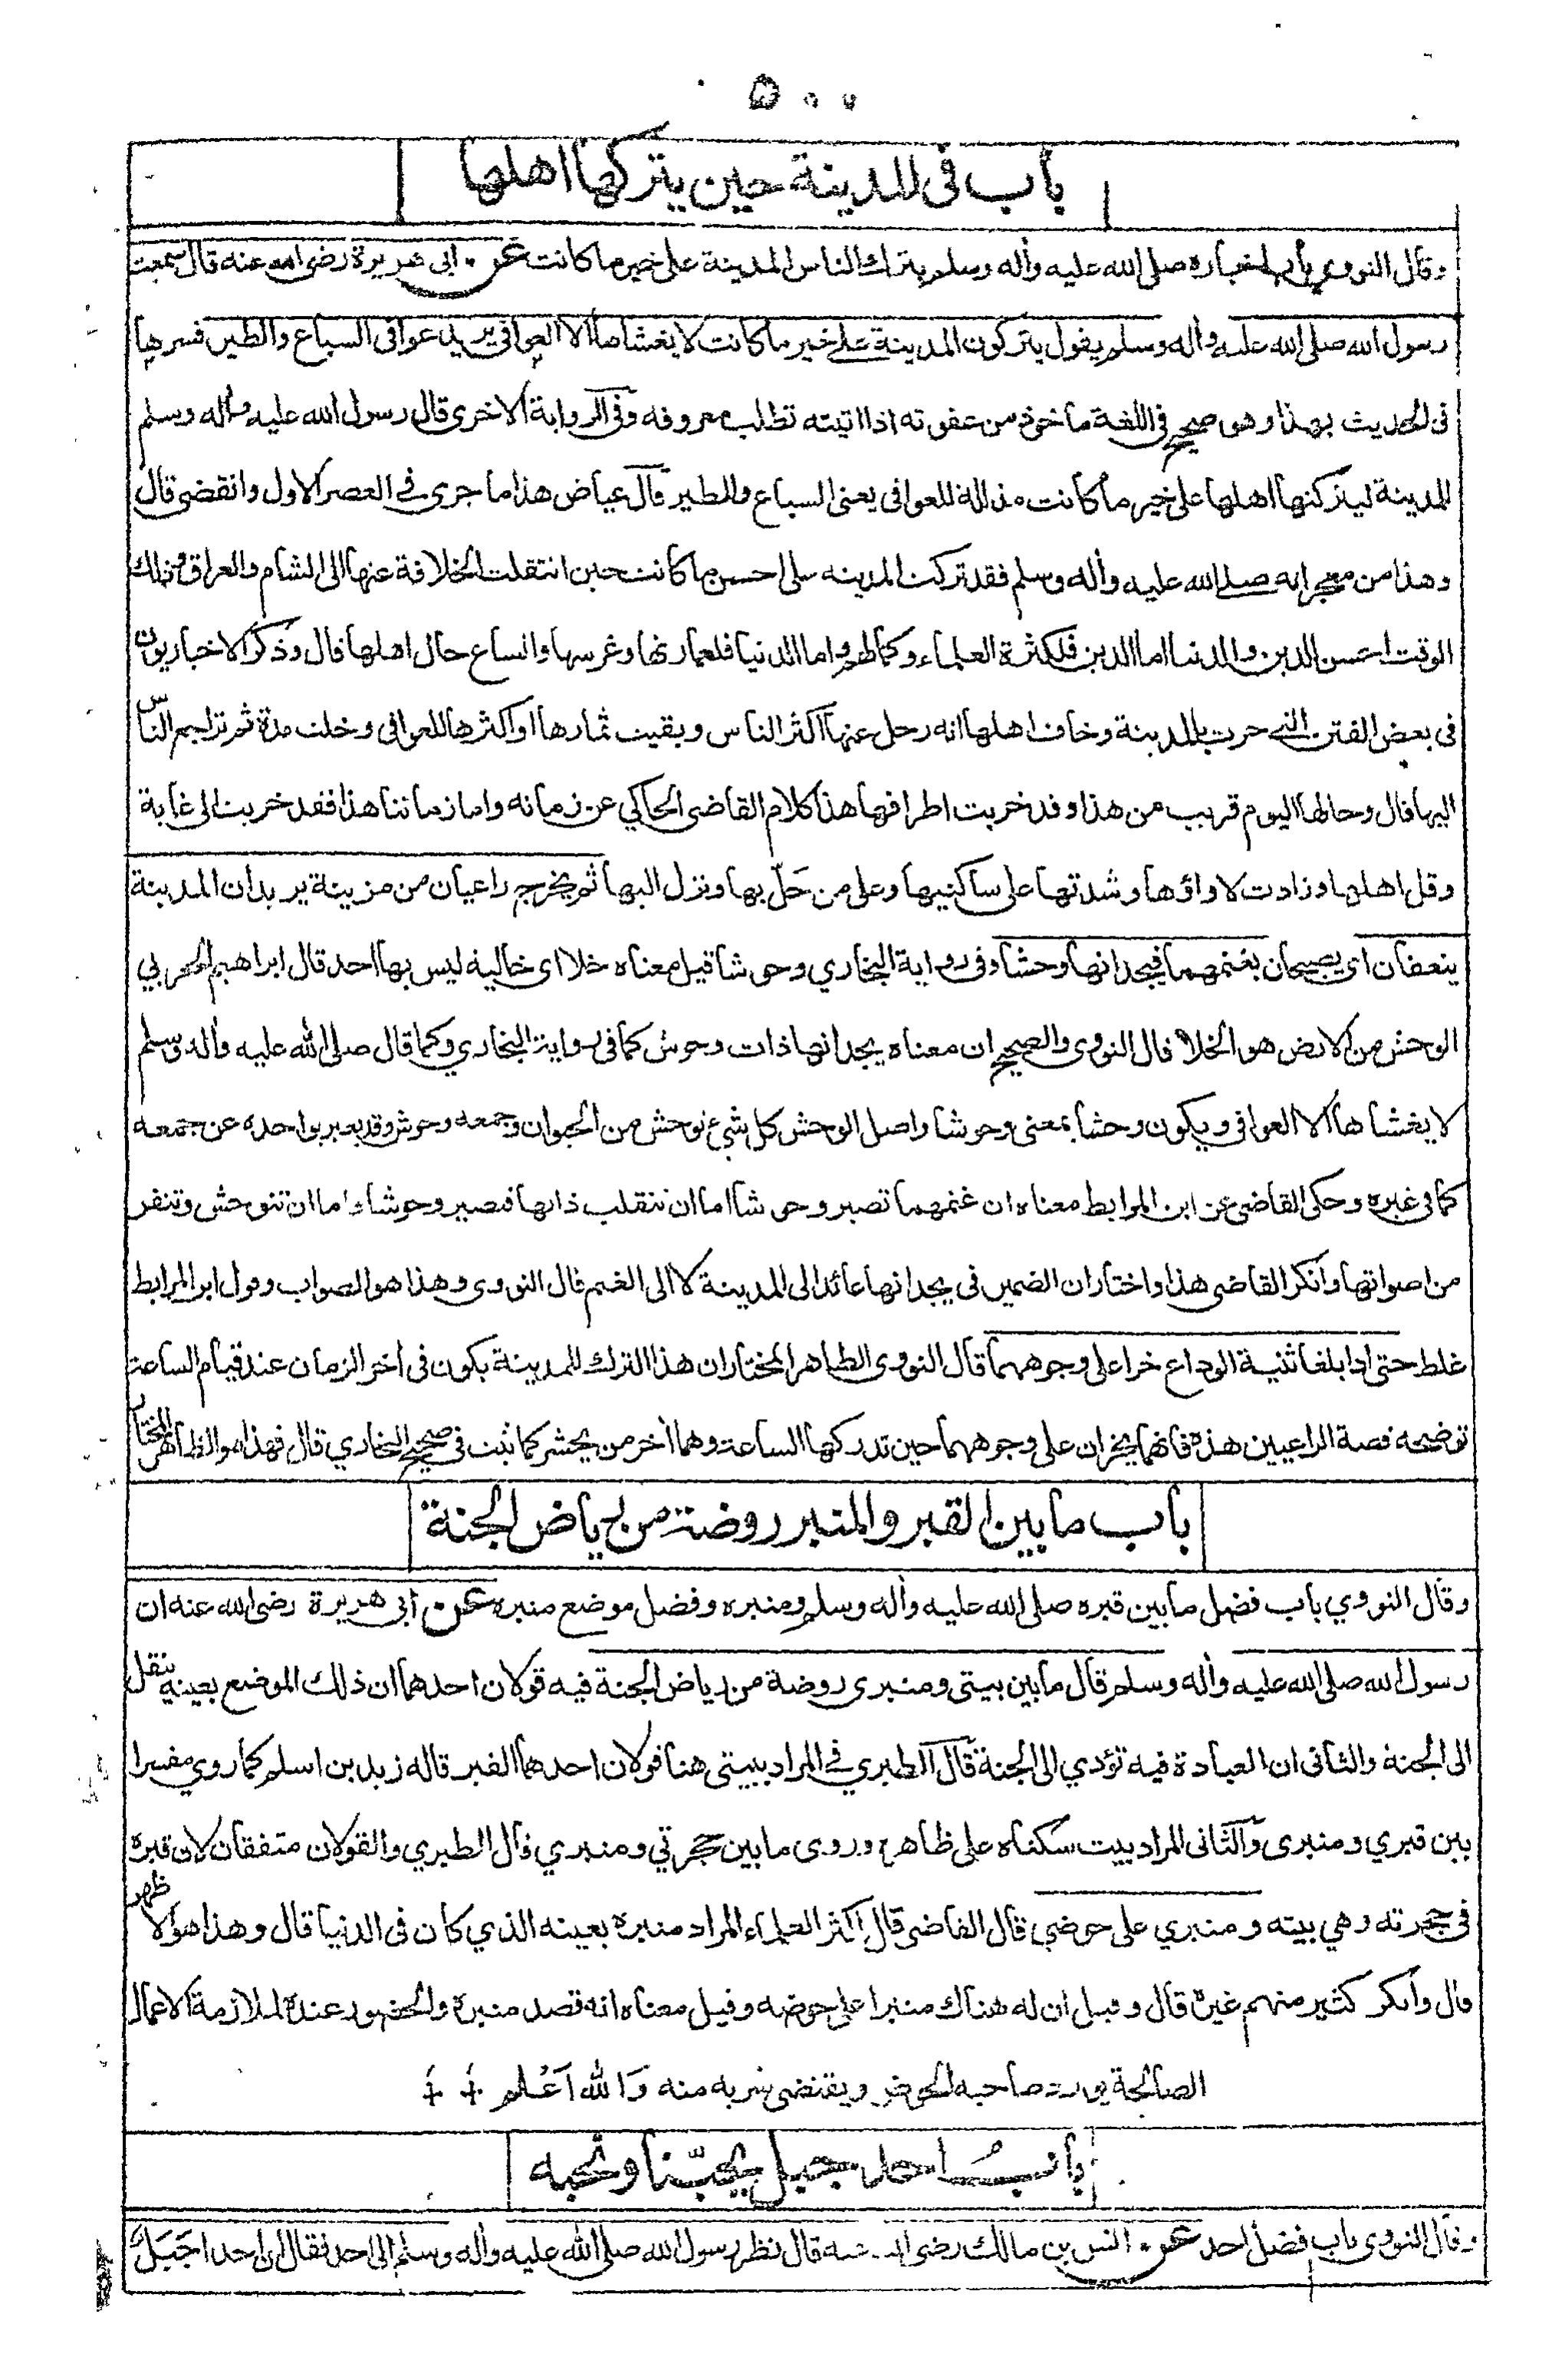 ۵۰۰
باب فى المدينة حين يتركها اهلها
وقال النووي باب اخباره صلى الله عليه وأله وسلم بترك الناس المدينة على خير ما كانت عن ابى هريرة رضى الله عنه قال سمعت
رسول الله صلى الله عليه وأله وسلم يقول يتركون المدينة على خير ما كانت لا يغشاها الا العوافي يريد عوافى السباع والطير فسرها
فى الحديث بهذا وهو صحيح فى اللغة ماخوذ من عفوته اذا اتيته تطلب معروفه وفى الرواية الاخرى قال رسول الله عليه وأله وسلم
للمدينة ليتركنها اهلها على خير ما كانت مذللة للعوافى يعنى السباع والطير قال عياض هذا ما جرى في العصر الاول وانقضى قال
وهذا من معجزاته صلى الله عليه وأله وسلم فقد تركت المدينه على احسن ما كانت حين انتقلت الخلافة عنها الى الشام والعراق وذلك
الوقت احسن للدين والدنيا اما الدين فلكثرة العلماء وكمالهم واما الدنيا فلعمارتها وغرسها واتساع حال اهلها قال وذكر الاخباريون
فى بعض الفتن التي جرت بالمدينة وخاف اهلها انه رحل عنها اكثر الناس وبقيت ثمارها او اكثرها للعوافى وخلت مدة ثم تراجع الناس
اليها قال وحالها اليوم قريب من هذا وقد خربت اطرافها هذا كلام القاضى الحاكي عن زمانه واما زماننا هذا فقد خربت الى غاية
وقل اهلها وزادت لاواؤها وشدتها على ساكنيها وعلى من حَلّ بها ونزل اليها ثم يخرج راعيان من مزينة يريدان المدينة
ينعقان اى يصيحان بغنمهما فيجدانها وحشا وفى رواية البخاري وحوشا قيل معناه خلا اى خالية ليس بها احد قال ابراهيم الحربي
الوحش من الارض هو الخلا قال النووى والصحيح ان معناه يجدانها ذات وحوش كما فى رواية البخاري وكما قال صلى الله عليه وأله وسلم
لا يغشاها الا العوافى ويكون وحشا بمعنى وحوشا واصل الوحش كل شيء توحش من الحيوان وجمعه وحوش وقد يعبر بواحده عن جمعه
كما فى غيره وحكى القاضى عن ابن المرابط معناه ان غنمهما تصير وحوشا اما ان تنقلب ذاتها فتصير وحوشا واما ان تتوحش وتنفر
من اصواتها وانكر القاضى هذا واختار ان الضمير فى يجدانها عائد الى المدينة لا الى الغنم قال النووى وهذا هو الصواب وقول ابن المرابط
غلط حتى اذا بلغا ثنية الوداع خرا على وجوههما قال النووى الظاهر المختار ان هذا الترك للمدينة يكون فى أخر الزمان عند قيام الساعة
توضحه قصة الراعيين هذه فانهما يخران على وجوههما حين تدركها الساعة وهما أخر من يحشر كما ثبت فى صحيح البخاري قال فهذا هو الظاهر المختار
باب ما بين القبر والمنبر روضة من رياض الجنة
وقال النووي باب فضل ما بين قبره صلى الله عليه وأله وسلم ومنبره وفضل موضع منبره عن أبى هريرة رضى الله عنه ان
رسول الله صلى الله عليه وأله وسلم قال ما بين بيتى ومنبرى روضة من رياض الجنة فيه قولان احدهما ان ذلك الموضع بعينه ينقل
الى الجنة والثانى ان العبادة فيه تؤدي الى الجنة قال الطبري في المراد ببيتى هنا قولان احدهما القبر قاله زيد بن اسلم كما روي مفسرا
بين قبري ومنبرى والثانى المراد بيت سكناه على ظاهره وروى ما بين حجرتي ومنبري قال الطبري والقولان متفقان لان قبره
فى حجرته وهي بيته ومنبري على حوضي قال القاضى قال اكثر العلماء المراد منبره بعينه الذي كان فى الدنيا قال وهذا هو الاظهر
قال وأنكر كثير منهم غيره قال وقيل ان له هناك منبرا على حوضه وقيل معناه انه قصد منبره والحضور عنده لملازمة الاعمال
الصالحة يورد صاحبه الحوض ويقتضى شربه منه وَالله اَعْلم
بابُ احد جبل يحبّنا ونحبه
وقال النووى باب فضل احد عن انس بن مالك رضى الله عنه قال نظر رسول الله صلى الله عليه وأله وسلم الى احد فقال ان احدا جَبَلٌ